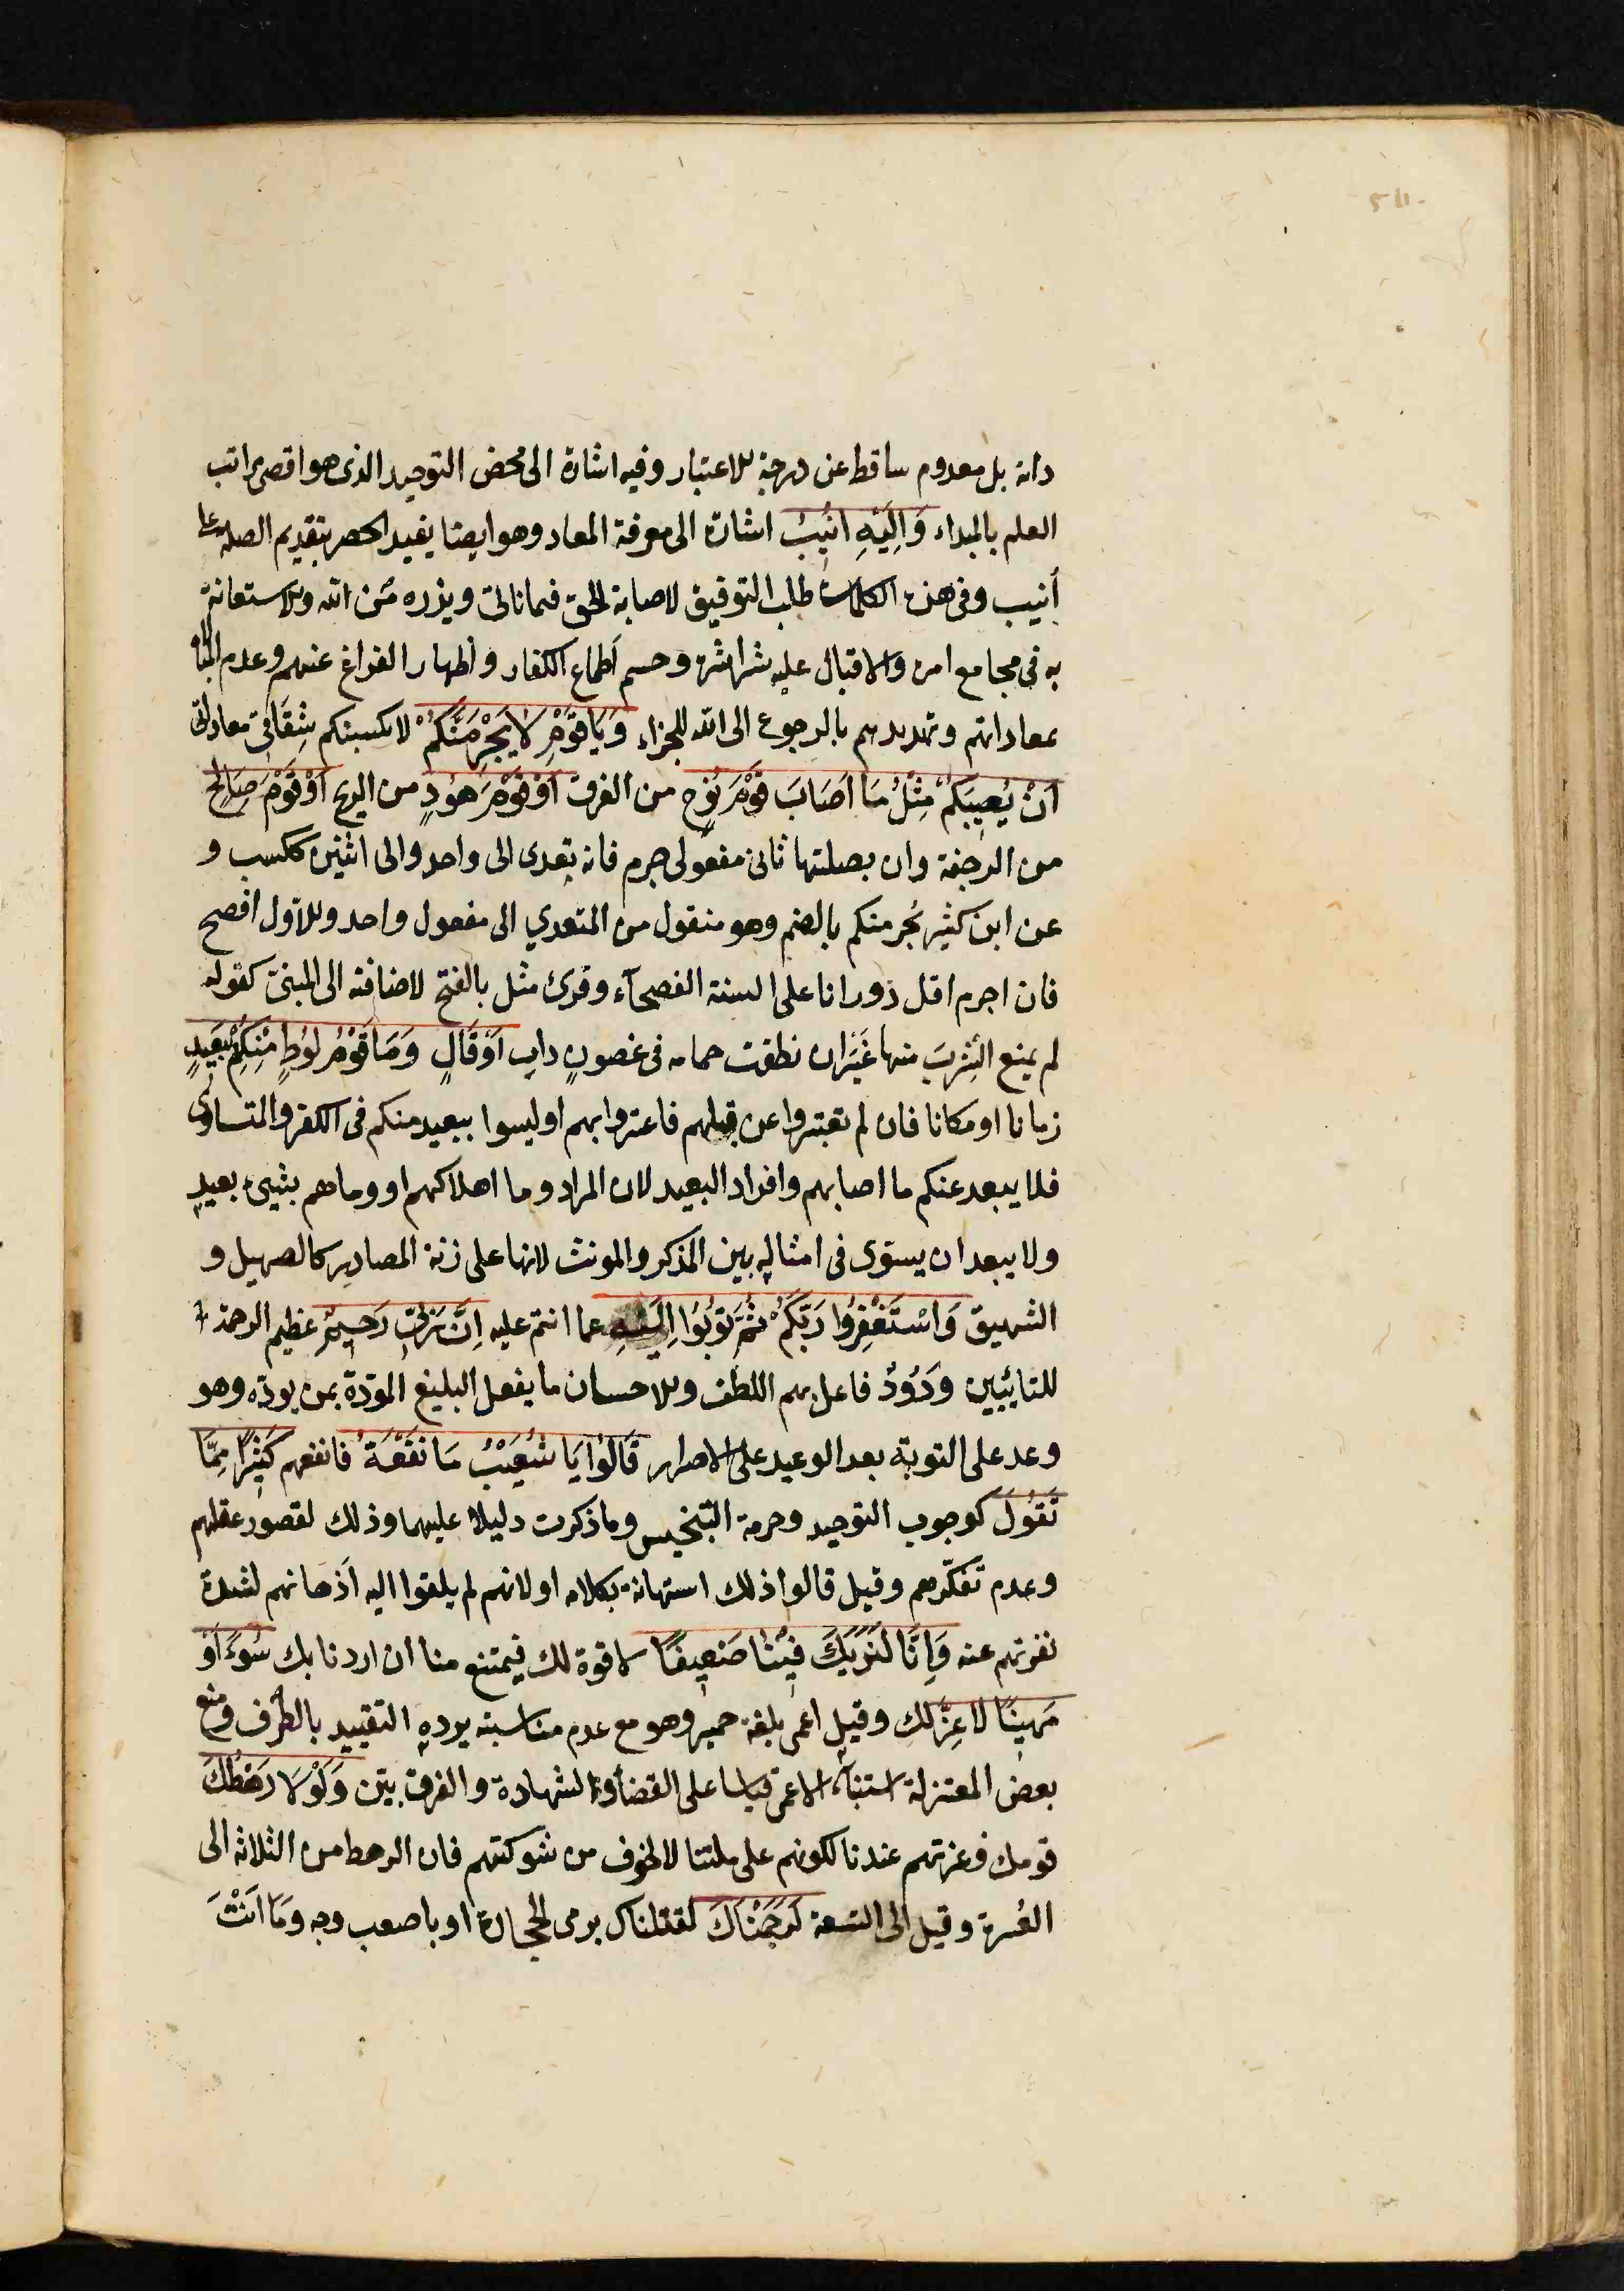 ذاته بل معدوم ساقط عن درجة الاعتبار وفيه اشارة الى محض التوحيد الذى هو اقصى مراتب
العلم بالمبداء وَاِلَيْهِ اُنيبُ اشارة الى معرفة المعاد وهو ايضا يفيد الحصر بتقديم الصلة على
أنيب وفى هذه الكلمات طلب التوفيق لاصابة الحق فيما ياتى ويذره من الله والاستعانة
به فى مجامع امره والاقبال عليه بشراشره وحسم أطماع الكفار واظهار الفراغ عنهم وعدم المبالاة
بمعاداتهم وتهديدهم بالرجوع الى الله للجزاء وَيَا قَوْمِ لَا يَجْرِمَنَّكُمْ لا يكسبنكم شِقَاقى معاداتى
اَنْ يُصِيبَكُمْ مِثْلُ مَا اَصَابَ قَوْمَ نُوحٍ من الغرق اَوْ قَوْمَ هُودٍ من الريح اَوْ قَوْمَ صَالِحٍ
من الرجفة وان بصلتها ثانى مفعولى جرم فانه يعدى الى واحد والى اثنين ككسب و
عن ابن كثير يُجرمنكم بالضم وهو منقول من المتعدي الى مفعول واحد والاول افصح
فان اجرم اقل دورانا على السنة الفصحآء وقرئ مثل بالفتح لاضافته الى المبنىّ كقوله
لم يمنع الشِربَ منها غَيْرَ ان نطقت حمامه فى غصونٍ ذات اَوْقَالٍ وَمَا قَوْمُ لُوطٍ مِنْكُمْ بِبَعِيدٍ
زمانا او مكانا فان لم تعتبروا عن قبلهم فاعتبروا بهم او ليسوا ببعيد منكم فى الكفر والمتساوى
فلا يبعد عنكم ما اصابهم وافراد البعيد لان المراد وما اهلاكهم او وما هم بشئ بعيد
ولا يبعد ان يستوى فى امثاله بين المذكر والمونث لانها على زنة المصادر كالصهيل و
الشهيق وَاسْتَغْفِرُوا رَبَّكُمْ ثُمَّ تُوبُوا اِلَيْهِ عما انتم عليه اِنَّ رَبِّى رَحِيمٌ عظيم الرحمة
للتايبين وَدُودٌ فاعل بهم اللطف والاحسان ما يفعل البليغ المودّة بمن يودّه وهو
وعد على التوبة بعد الوعيد على الاصرار قَالُوا يَا شُعَيْبُ مَا نَفْقَهُ فانفهم كَثِيرًا مِمَّا
تَقُولُ كوجوب التوحيد وحرمة التبخيس وما ذكرت دليلا عليهما وذلك لقصور عقلهم
وعدم تفكّرهم وقيل قالوا ذلك استهانة بكلامه او لانهم لم يلقوا اليه اَذهانهم لشدة
نفرتهم عنه وَاِنَّا لَنَرَيكَ فِينَا ضَعِيفًا لا قوة لك فيمتنع منا ان اردنا بك سُوءًا اَوْ
مَهِينًا لَا عِزَّ لك وقيل اعمى بلغة حمير وهو مع عدم مناسبته يرده التقييد بالظرف ومنع
بعض المعتزلة استنباء الاعمى قياسا على القضاء والشهادة والفرق بيّن وَلَوْلَا رَهْطُكَ
قومك وعزتهم عندنا لكونهم على ملتنا لا لخوف من شوكتهم فان الرهط من الثلاثه الى
العُشرة وقيل الى التسعة لَرَجَمْنَاكَ لقتلناك برمى الحجارة او باصعب وجه وَمَا اَنْتَ